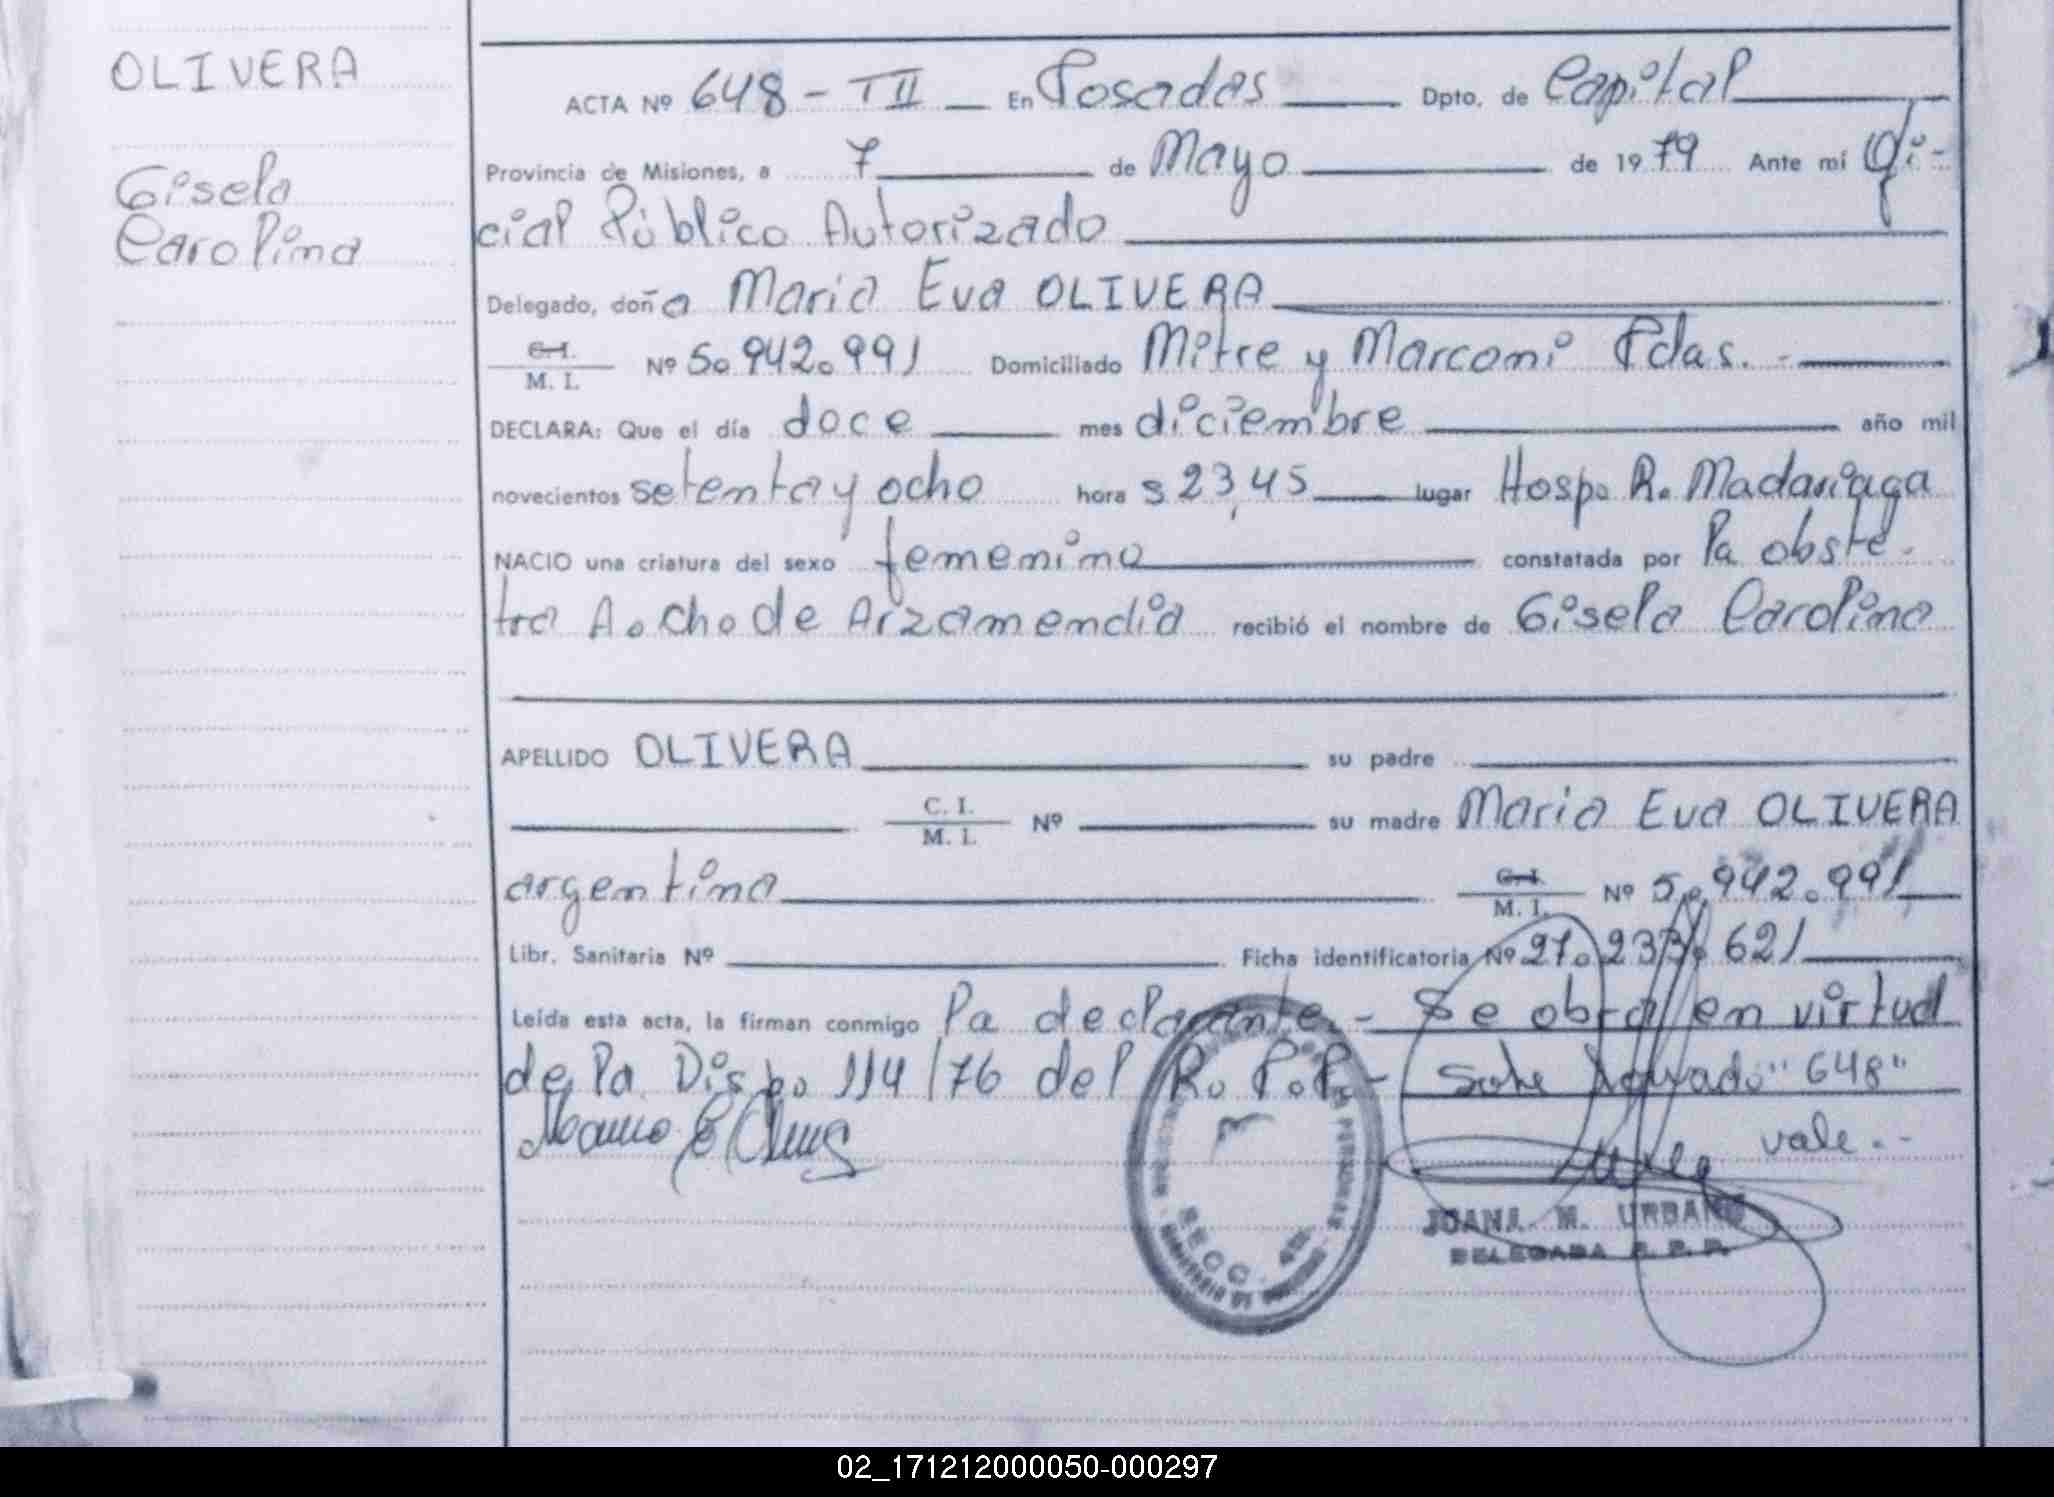 OLIVERA
Gisela
Carolina
ACTA Nº 648 - TII En Posadas Dpto. de Capital
Provincia de Misiones, a 7 de Mayo de 1979 Ante mí Ofi-
cial Público Autorizado
Delegado, doña Maria Eva OLIVERA
C. I.
M. I. Nº 5.942.991 Domiciliado Mitre y Marconi Pdas. -
DECLARA: Que el día doce mes diciembre año mil
novecientos setenta y ocho hora s 23,45 lugar Hosp. R. Madariaga
NACIO una criatura del sexo femenino constatada por la obste-
tra A. Cho de Arzamendia recibió el nombre de Gisela Carolina
APELLIDO OLIVERA su padre
C. I.
M. I. Nº su madre Maria Eva OLIVERA
argentina C. I.
M. I. Nº 5.942.991
Libr. Sanitaria Nº Ficha identificatoria Nº 27.233.621
Leída esta acta, la firman conmigo la declarante - Se obra en virtud
de la Disp. 114/76 del R. P. P. - Sobre "648"
vale. -
SECC.
JOANA M. URBANO
DELEGADA R. P. P.
02_171212000050-000297